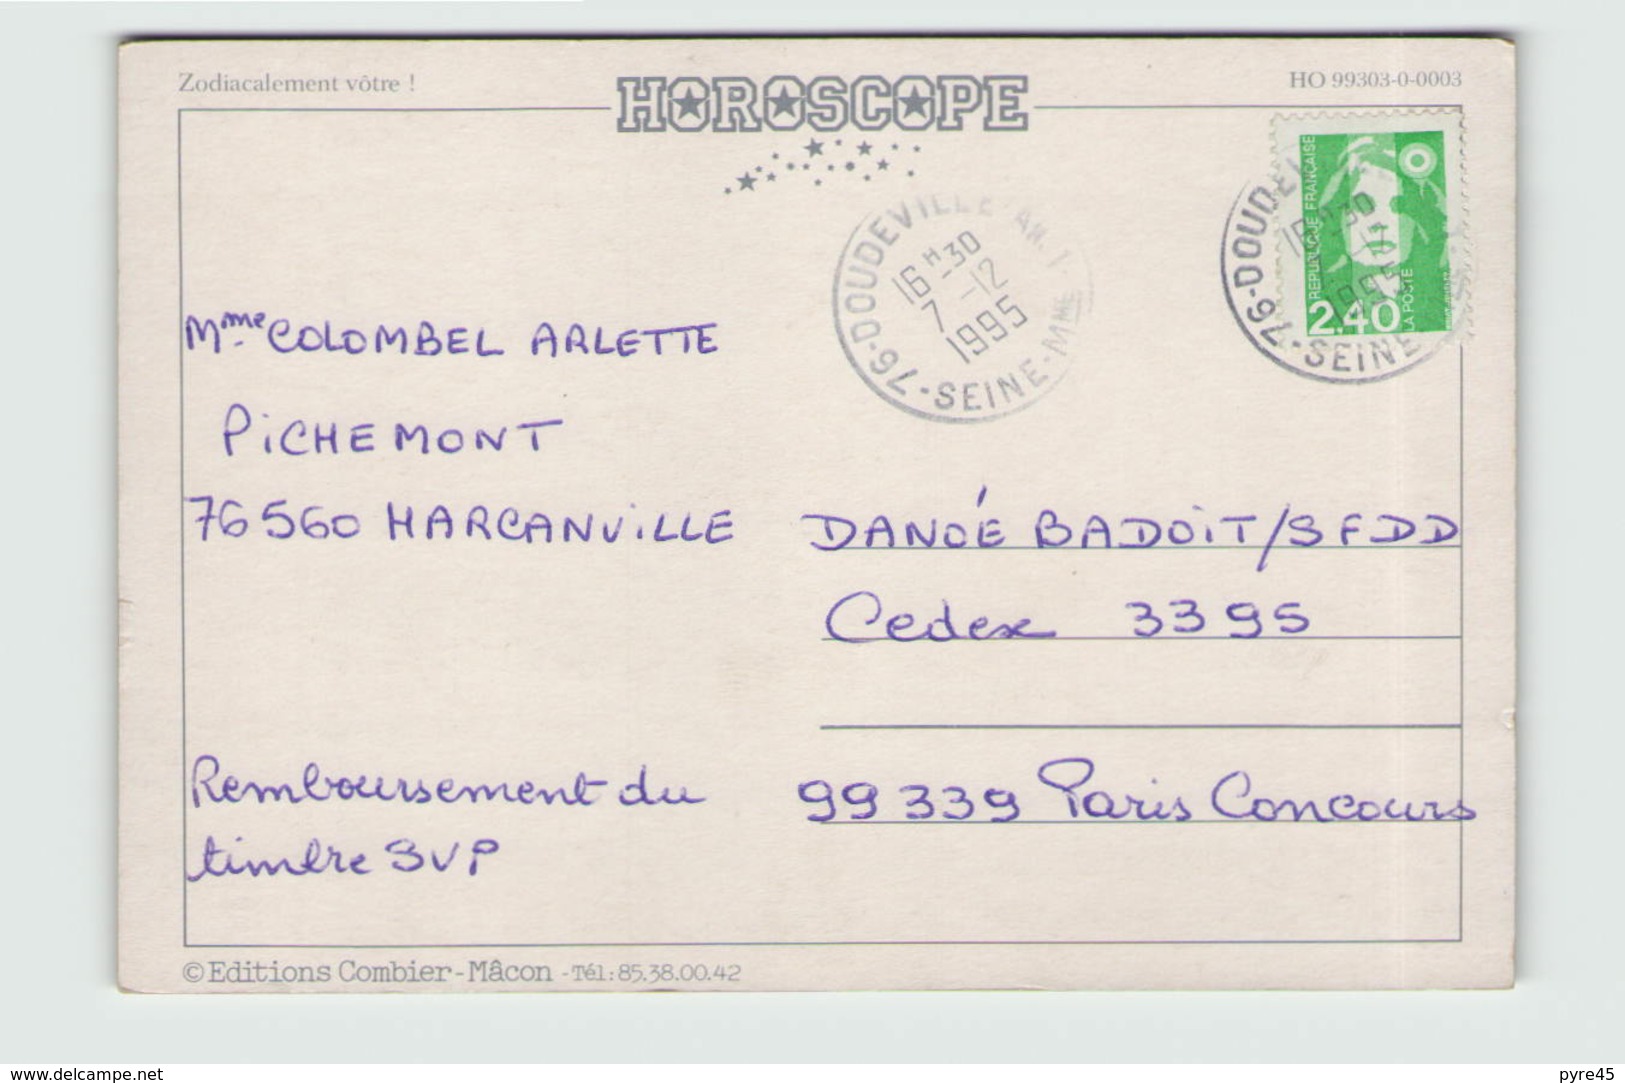 Zodiacalement vôtre !
HOROSCOPE
HO 99303-0-0003
REPUBLIQUE FRANÇAISE
2,40
LA POSTE
76-DOUDEVILLE
16H30
7-12
1995
SEINE-MME
76-DOUDE
1995
SEINE
Mme COLOMBEL ARLETTE
PICHEMONT
76560 HARCANVILLE
DANOÉ BADOIT/SFDD
Cedex 3395
99339 Paris Concours
Remboursement du
timbre SVP
©Editions Combier-Mâcon -Tél:85.38.00.42
www.delcampe.net
pyre45